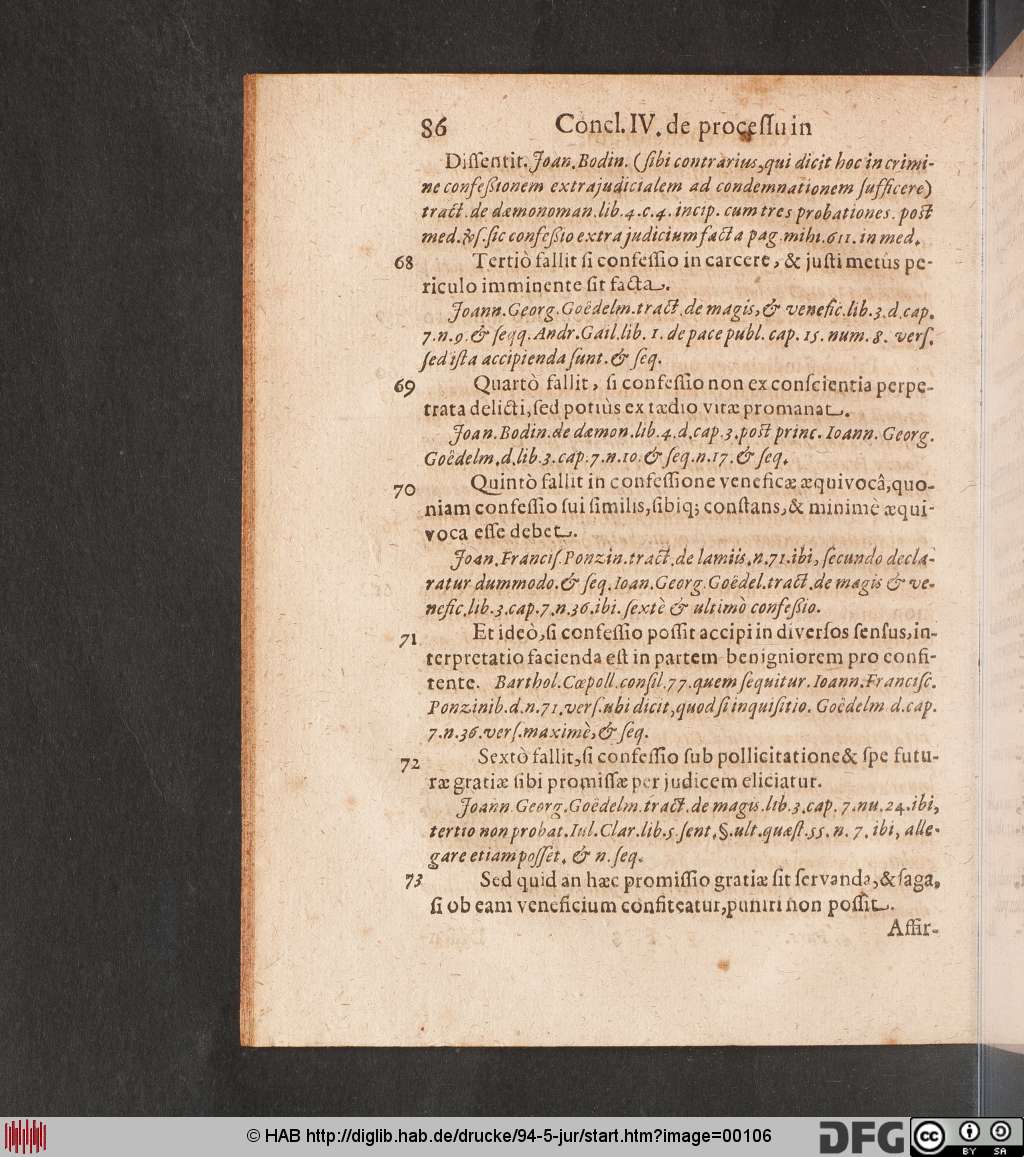 86 Concl. IV. de processu in
Dissentit. Joan. Bodin. (sibi contrarius, qui dicit hoc in crimi-
ne confeßionem extrajudicialem ad condemnationem sufficere)
tract. de dæmonoman. lib. 4. c. 4. incip. cum tres probationes. post
med. & s. sic confeßio extra judicium facta pag. mihi. 611. in med.
68 Tertiò fallit si confessio in carcere, & justi metûs pe-
riculo imminente sit facta.
Joann. Georg. Goëdelm. tract. de magis, & venefic. lib. 3. d. cap.
7. n. 9. & seqq. Andr. Gail. lib. 1. de pace publ. cap. 15. num. 8. vers.
sed ista accipienda sunt. & seq.
69 Quartò fallit, si confessio non ex conscientia perpe-
trata delicti, sed potiùs ex tædio vitæ promanat.
Joan. Bodin. de dæmon. lib. 4. d. cap. 3. post princ. Ioann. Georg.
Goëdelm. d. lib. 3. cap. 7. n. 10. & seq. n. 17. & seq.
70 Quintò fallit in confessione veneficæ æquivocâ, quo-
niam confessio sui similis, sibiq; constans, & minimè æqui-
voca esse debet.
Joan. Francis. Ponzin. tract. de lamiis. n. 71. ibi, secundo decla-
ratur dummodo. & seq. Ioan. Georg. Goëdel. tract. de magis & ve-
nefic. lib. 3. cap. 7. n. 36. ibi. sextè & ultimò confeßio.
71 Et ideò, si confessio possit accipi in diversos sensus, in-
terpretatio facienda est in partem benigniorem pro confi-
tente. Barthol. Cæpoll. consil. 77. quem sequitur. Ioann. Francisc.
Ponzinib. d. n. 71. vers. ubi dicit, quod si inquisitio. Goëdelm. d. cap.
7. n. 36. vers. maximè, & seq.
72 Sextò fallit, si confessio sub pollicitatione & spe futu-
ræ gratiæ sibi promissæ per judicem eliciatur.
Joann. Georg. Goëdelm. tract. de magis. lib. 3. cap. 7. nu. 24. ibi,
tertio non probat. Iul. Clar. lib. 5. sent. §. ult. quæst. 55. n. 7. ibi, alle-
gare etiam posset. & n. seq.
73 Sed quid an hæc promissio gratiæ sit servanda, & saga,
si ob eam veneficium confiteatur, puniri non possit.
Affir-
© HAB http://diglib.hab.de/drucke/94-5-jur/start.htm?image=00106
DFG
cc BY SA